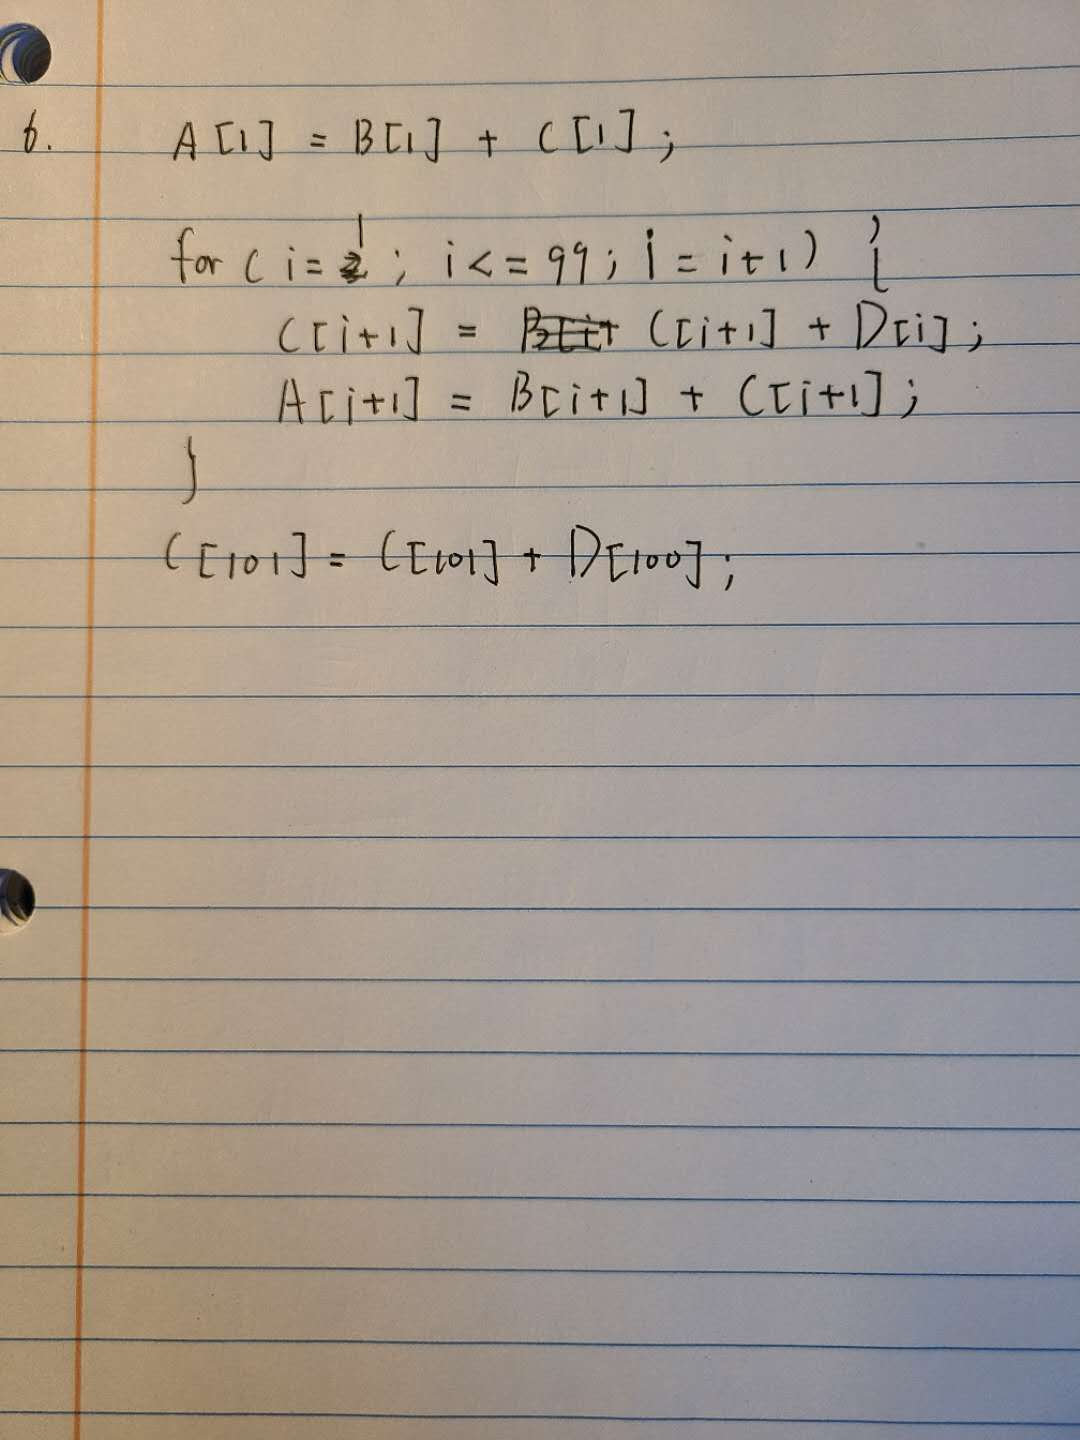 6. A[1] = B[1] + C[1];
for (i=1; i<=99; i=i+1) {
C[i+1] = C[i+1] + D[i];
A[i+1] = B[i+1] + C[i+1];
}
C[101] = C[101] + D[100];